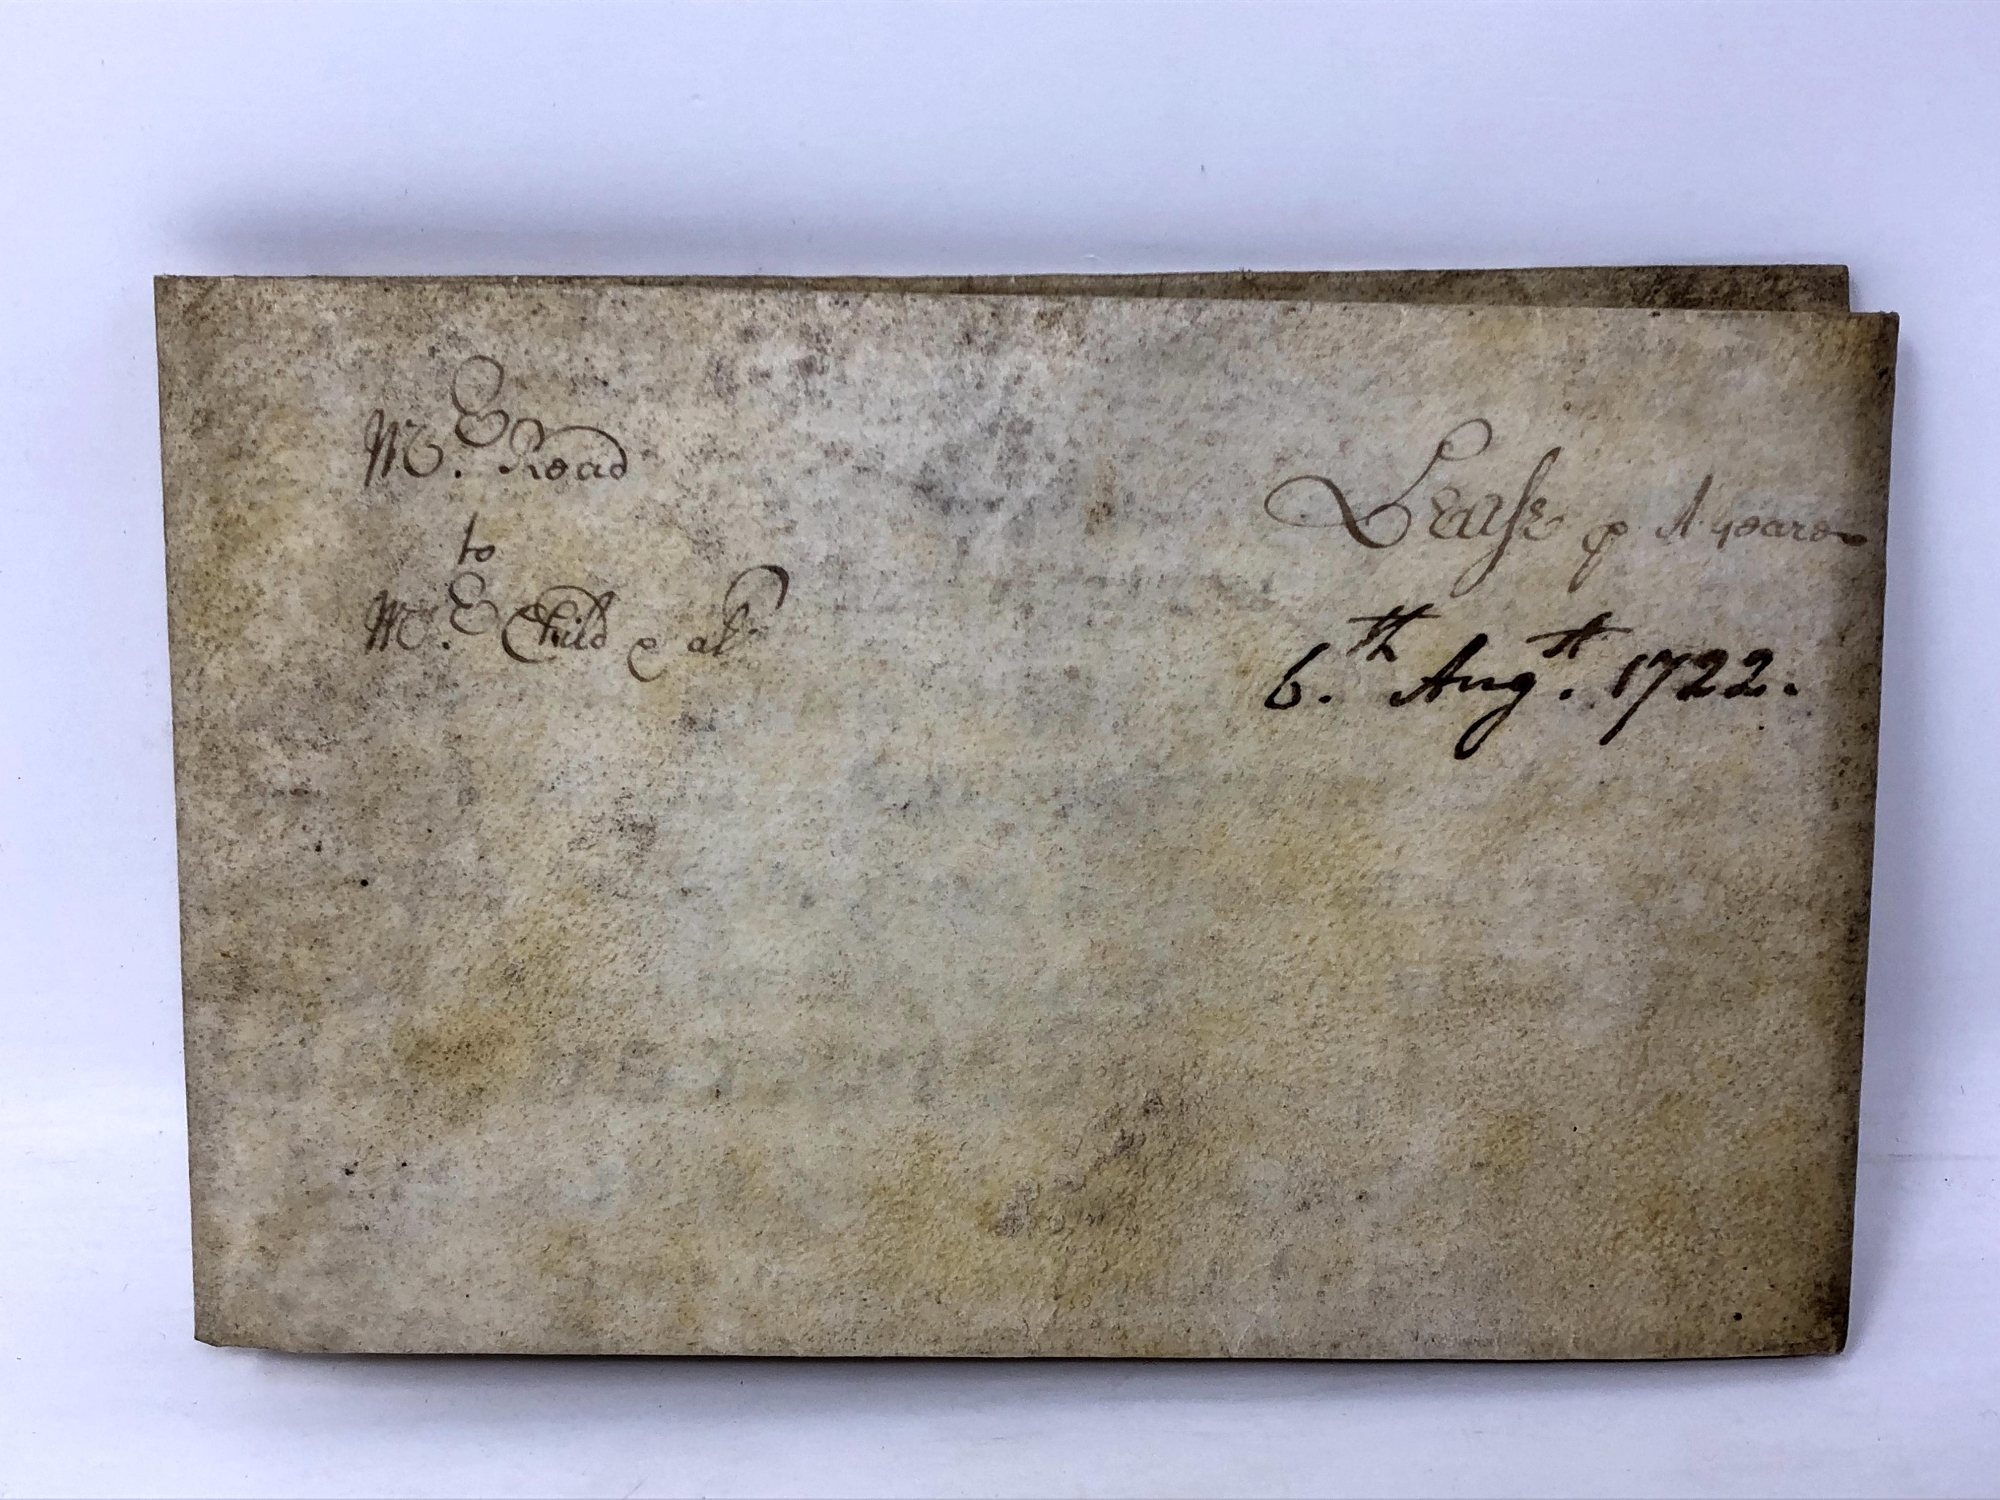 Mr. Read
to
Mr. Child & al
Lease p A yeare
6.th Augst. 1722.